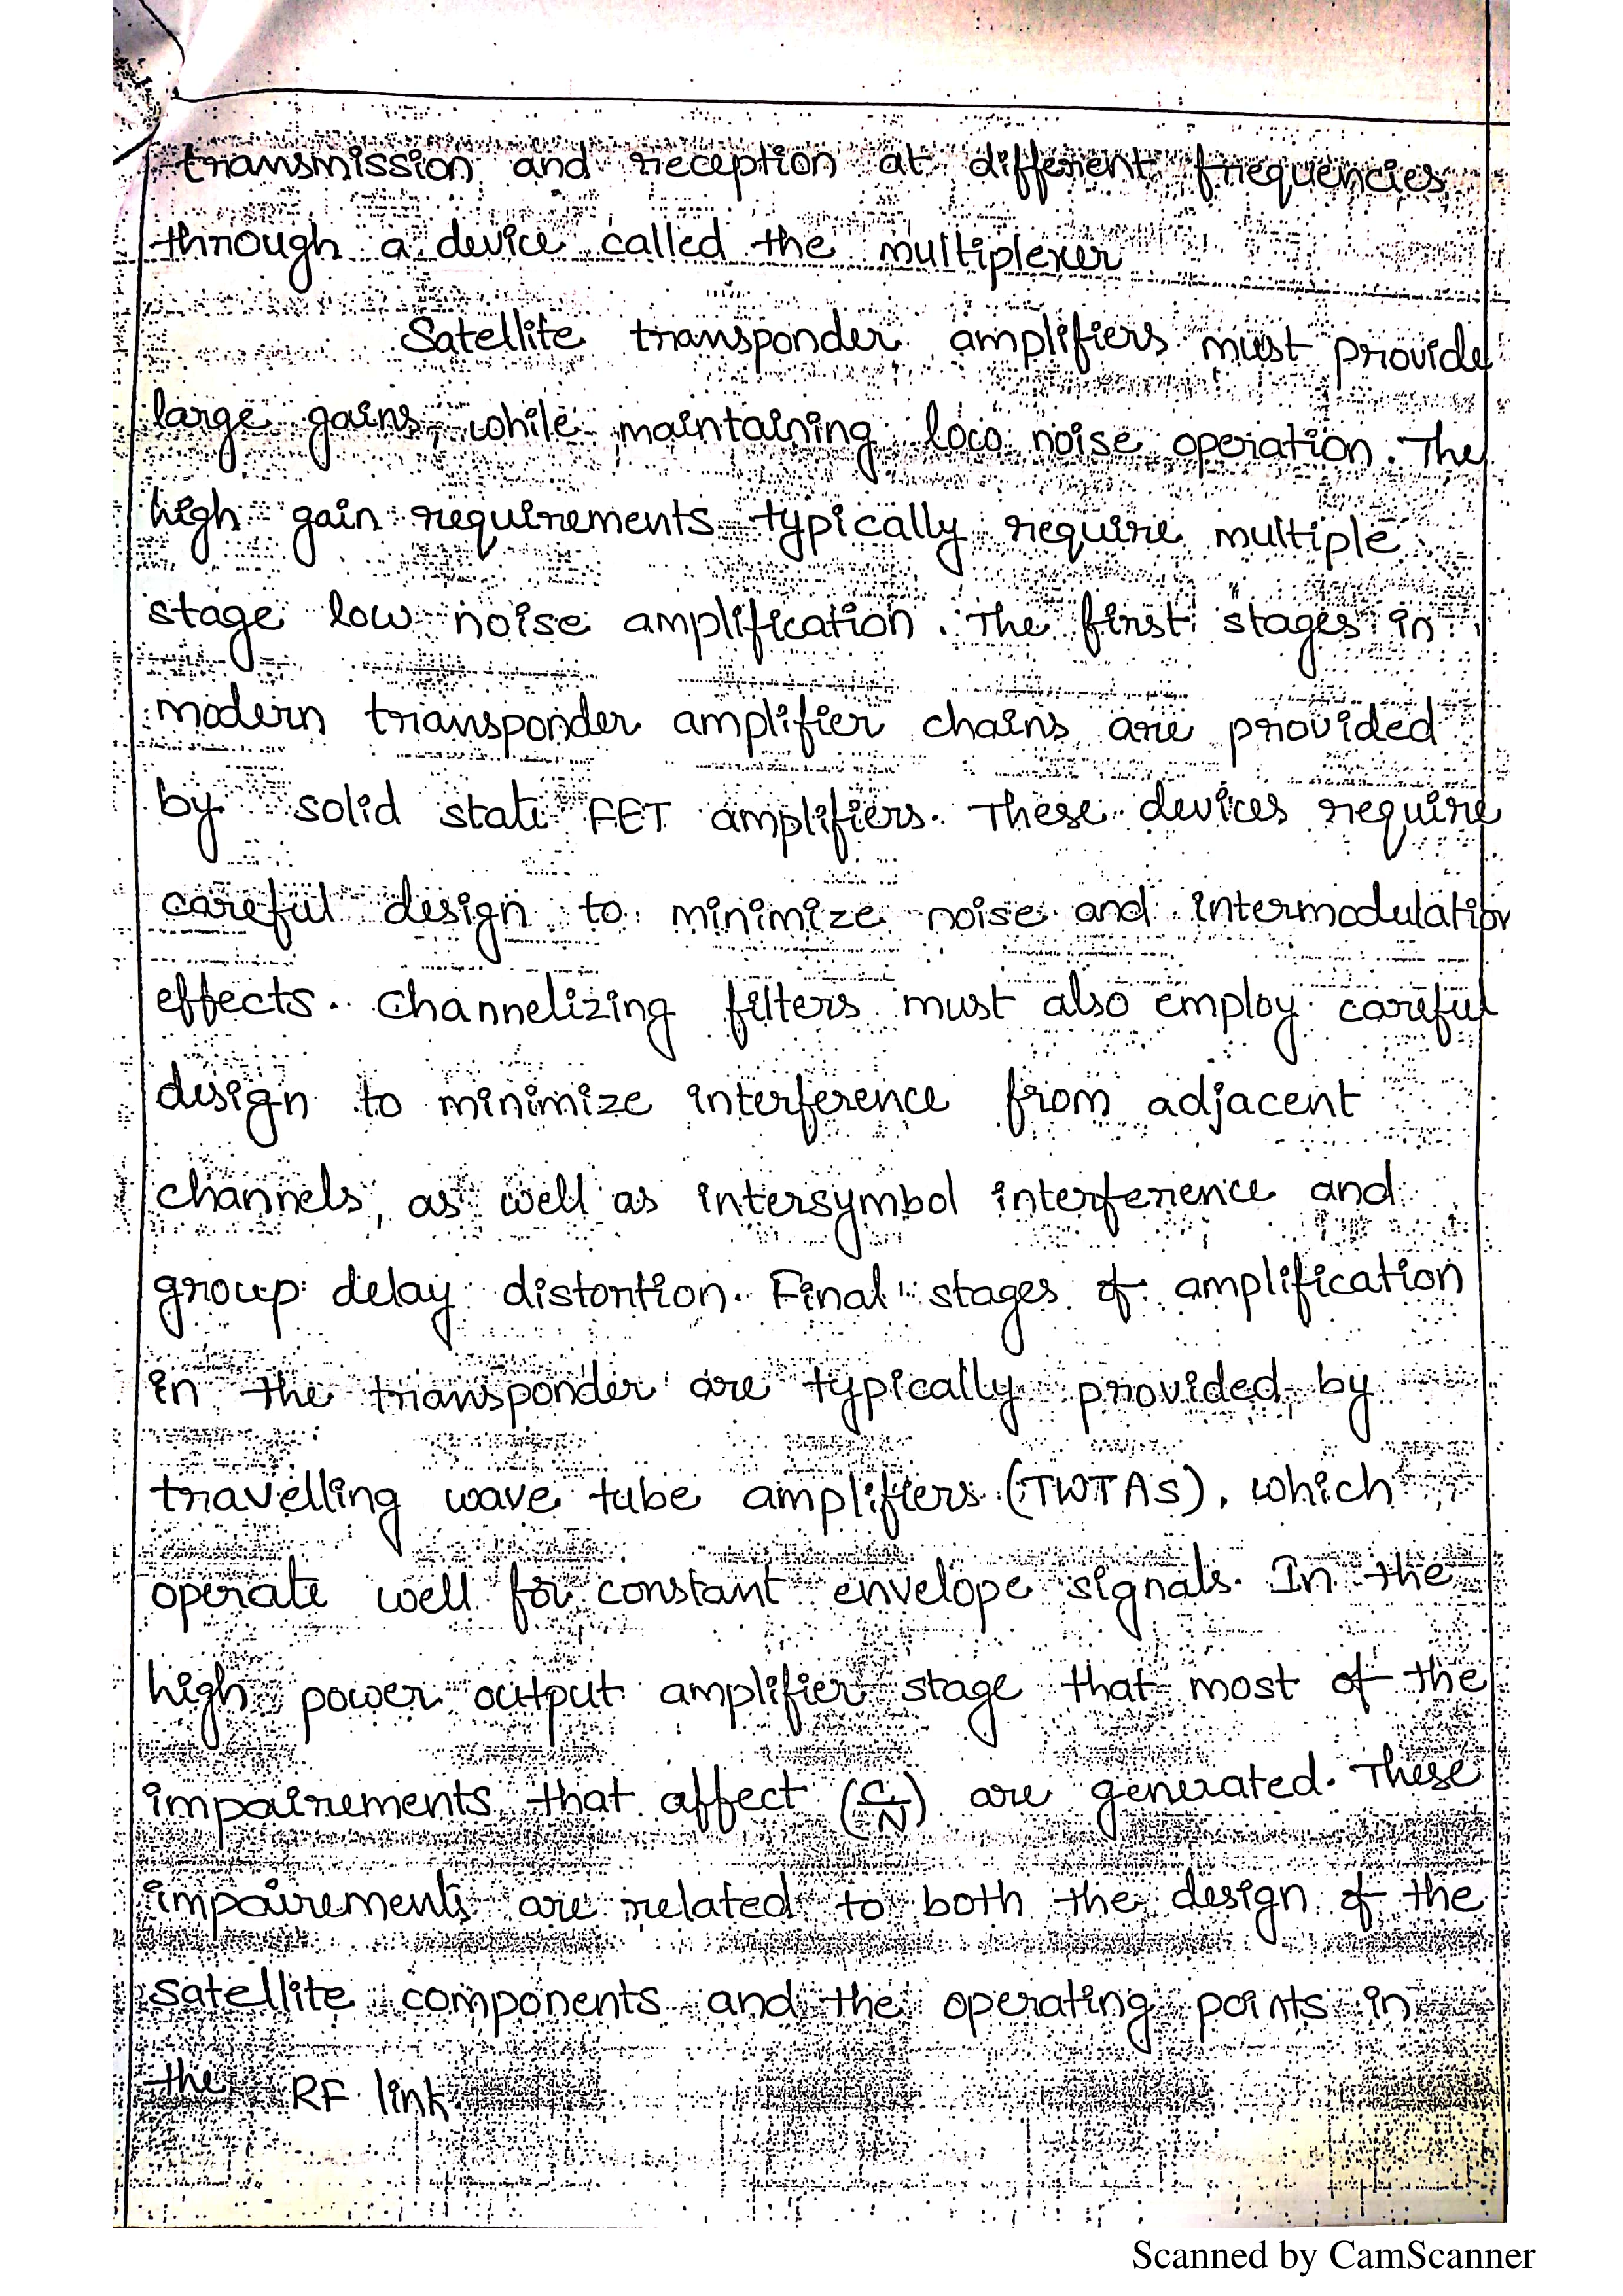 transmission and reception at different frequencies
through a device called the multiplexer
Satellite transponder amplifiers must provide
large gains, while maintaining low noise operation. The
high gain requirements typically require multiple
stage low noise amplification. The first stages in
modern transponder amplifier chains are provided
by solid state FET amplifiers. These devices require
careful design to minimize noise and intermodulation
effects. Channelizing filters must also employ careful
design to minimize interference from adjacent
channels, as well as intersymbol interference and
group delay distortion. Final stages of amplification
in the transponder are typically provided by
travelling wave tube amplifiers (TWTAs), which
operate well for constant envelope signals. In the
high power output amplifier stage that most of the
impairements that affect (C/N) are generated. These
impairements are related to both the design of the
satellite components and the operating points in
the RF link.
Scanned by CamScanner